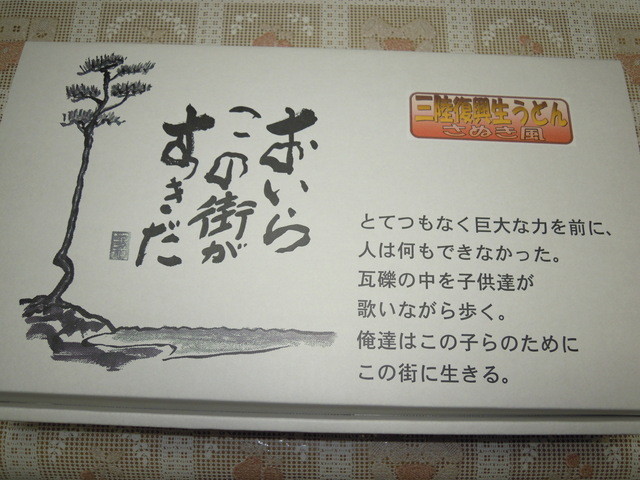 おいら
この街が
すきだ
三陸復興生うどん
さぬき風
とてつもなく巨大な力を前に、
人は何もできなかった。
瓦礫の中を子供達が
歌いながら歩く。
俺達はこの子らのために
この街に生きる。